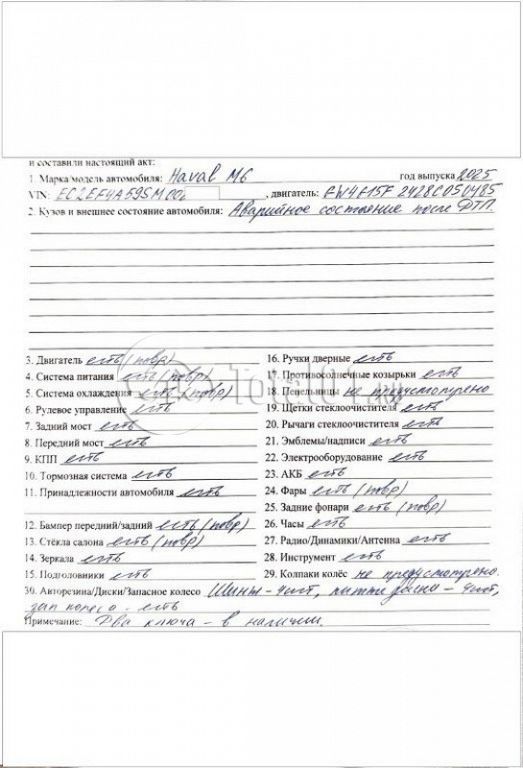 и составили настоящий акт:
1. Марка/модель автомобиля: Haval M6 год выпуска 2025
VIN: EC2EF4A59SM00 , двигатель: FW4E15F 2428C050485
2. Кузов и внешнее состояние автомобиля: Аварийное состояние после ДТП.
3. Двигатель есть (повр)
4. Система питания есть (повр)
5. Система охлаждения есть (повр)
6. Рулевое управление есть
7. Задний мост есть
8. Передний мост есть
9. КПП есть
10. Тормозная система есть
11. Принадлежности автомобиля есть
12. Бампер передний/задний есть (повр)
13. Стёкла салона есть (повр)
14. Зеркала есть
15. Подголовники есть
16. Ручки дверные есть
17. Противосолнечные козырьки есть
18. Пепельницы не предусмотрено
19. Щетки стеклоочистителя есть
20. Рычаги стеклоочистителя есть
21. Эмблемы/надписи есть
22. Электрооборудование есть
23. АКБ есть
24. Фары есть (повр)
25. Задние фонари есть (повр)
26. Часы есть
27. Радио/Динамики/Антенна есть
28. Инструмент есть
29. Колпаки колёс не предусмотрено.
30. Авторезина/Диски/Запасное колесо Шины - 4шт, литые диски - 4шт,
зап колесо - есть
Примечание: Два ключа - в наличии.